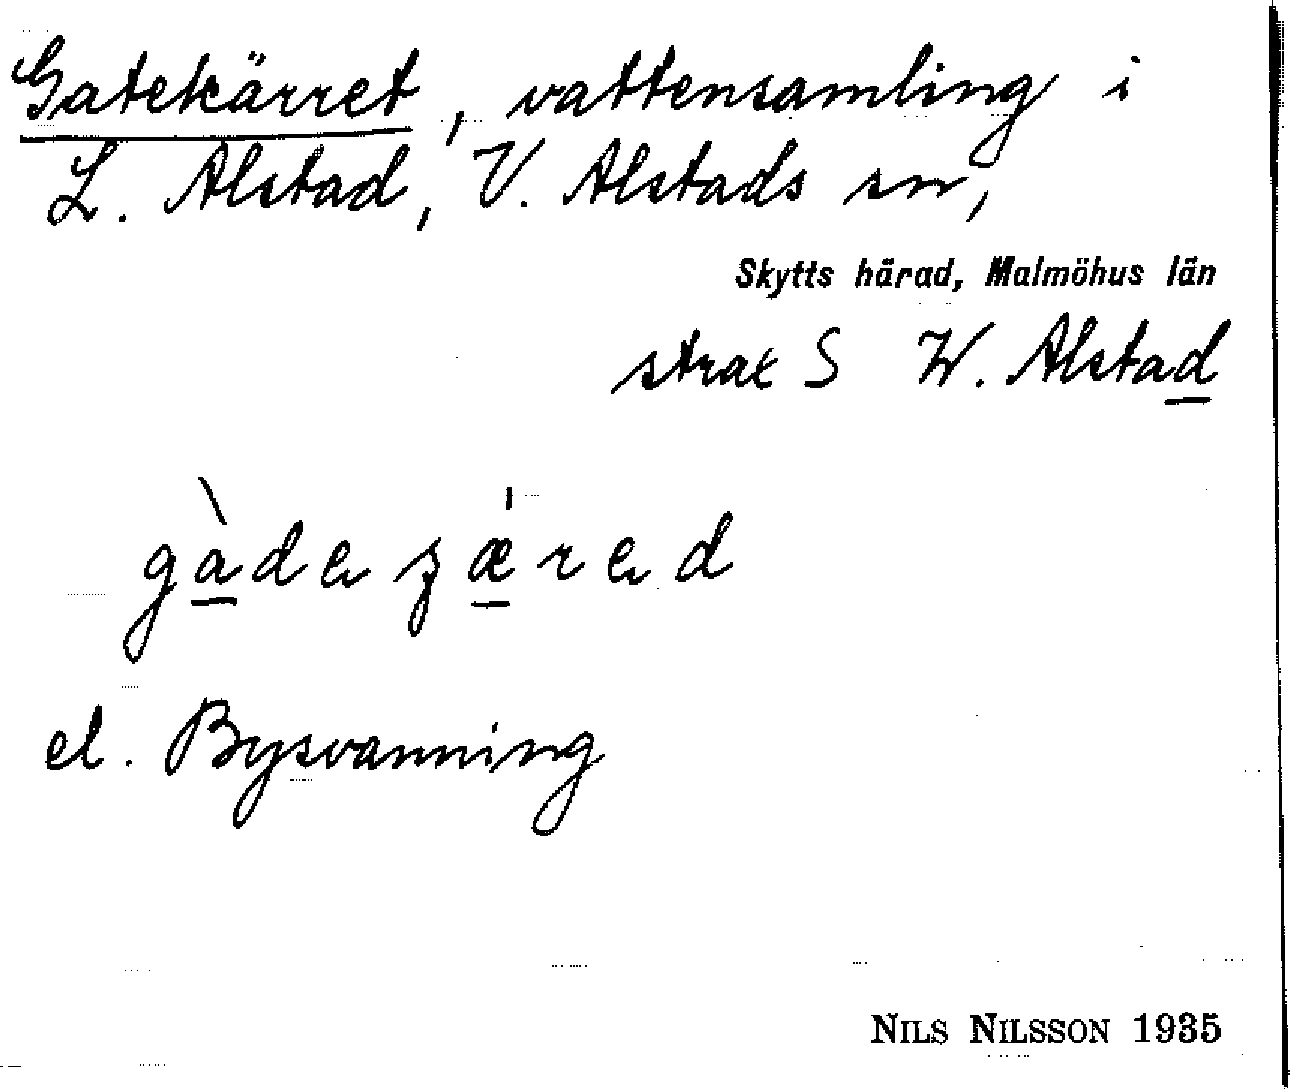 Gatekärret, vattensamling i
L. Alstad, V. Alstads sn,
Skytts härad, Malmöhus län
strax S W. Alstad
el. Bysvanning
NILS NILSSON 1935